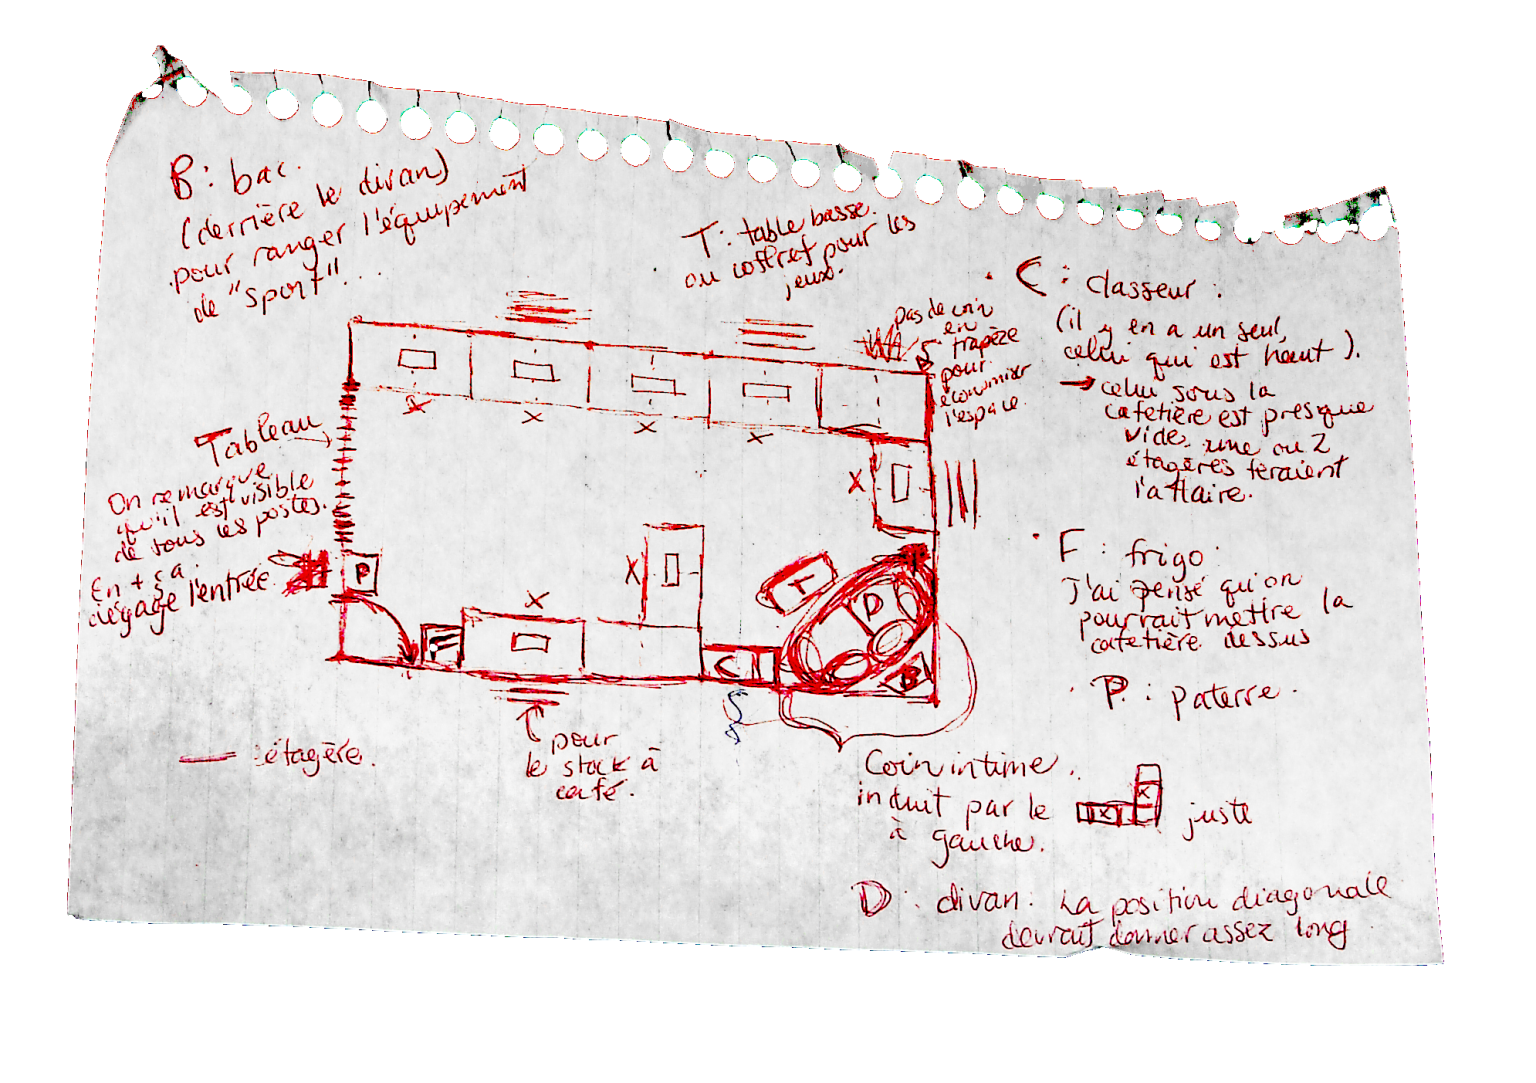 B : bac.
(derrière le divan)
pour ranger l'équipement
de "sport"...
T : table basse.
ou coffret pour les
jeux.
pas de coin
en
trapèze
pour
économiser
l'espace.
C : classeur :
(il y en a un seul,
celui qui est haut).
→ celui sous la
cafetière est presque
vide. une ou 2
étagères feraient
l'affaire.
Tableau
On remarque
qu'il est visible
de tous les postes.
En + ça
dégage l'entrée.
X
X
X
X
X
X
X
P
F
T
D
C
B
F : frigo :
J'ai pensé qu'on
pourrait mettre la
cafetière dessus
P : paterre.
— : étagère.
pour
le stock à
café.
Coin intime.
induit par le X X juste
à gauche.
D : divan : La position diagonale
devrait donner assez long